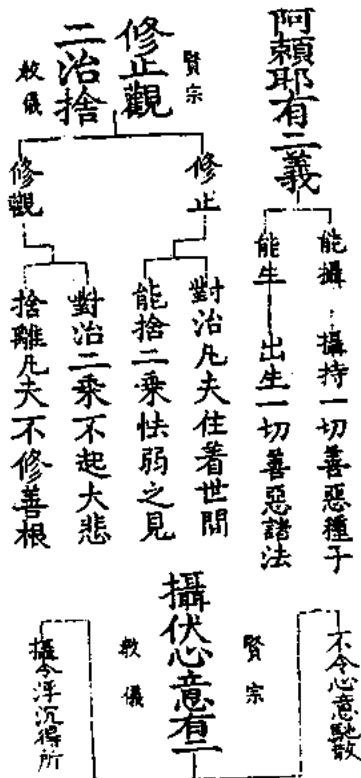 阿賴耶有二義
能攝
攝持一切善惡種子
能生
出生一切善惡諸法
修正觀二治捨
賢宗
教儀
修止
對治凡夫住着世間
能捨二乘怯弱之見
修觀
對治二乘不起大悲
捨離凡夫不修善根
攝伏心意有二
賢宗
教儀
不令心意馳散
攝令浮沉得所